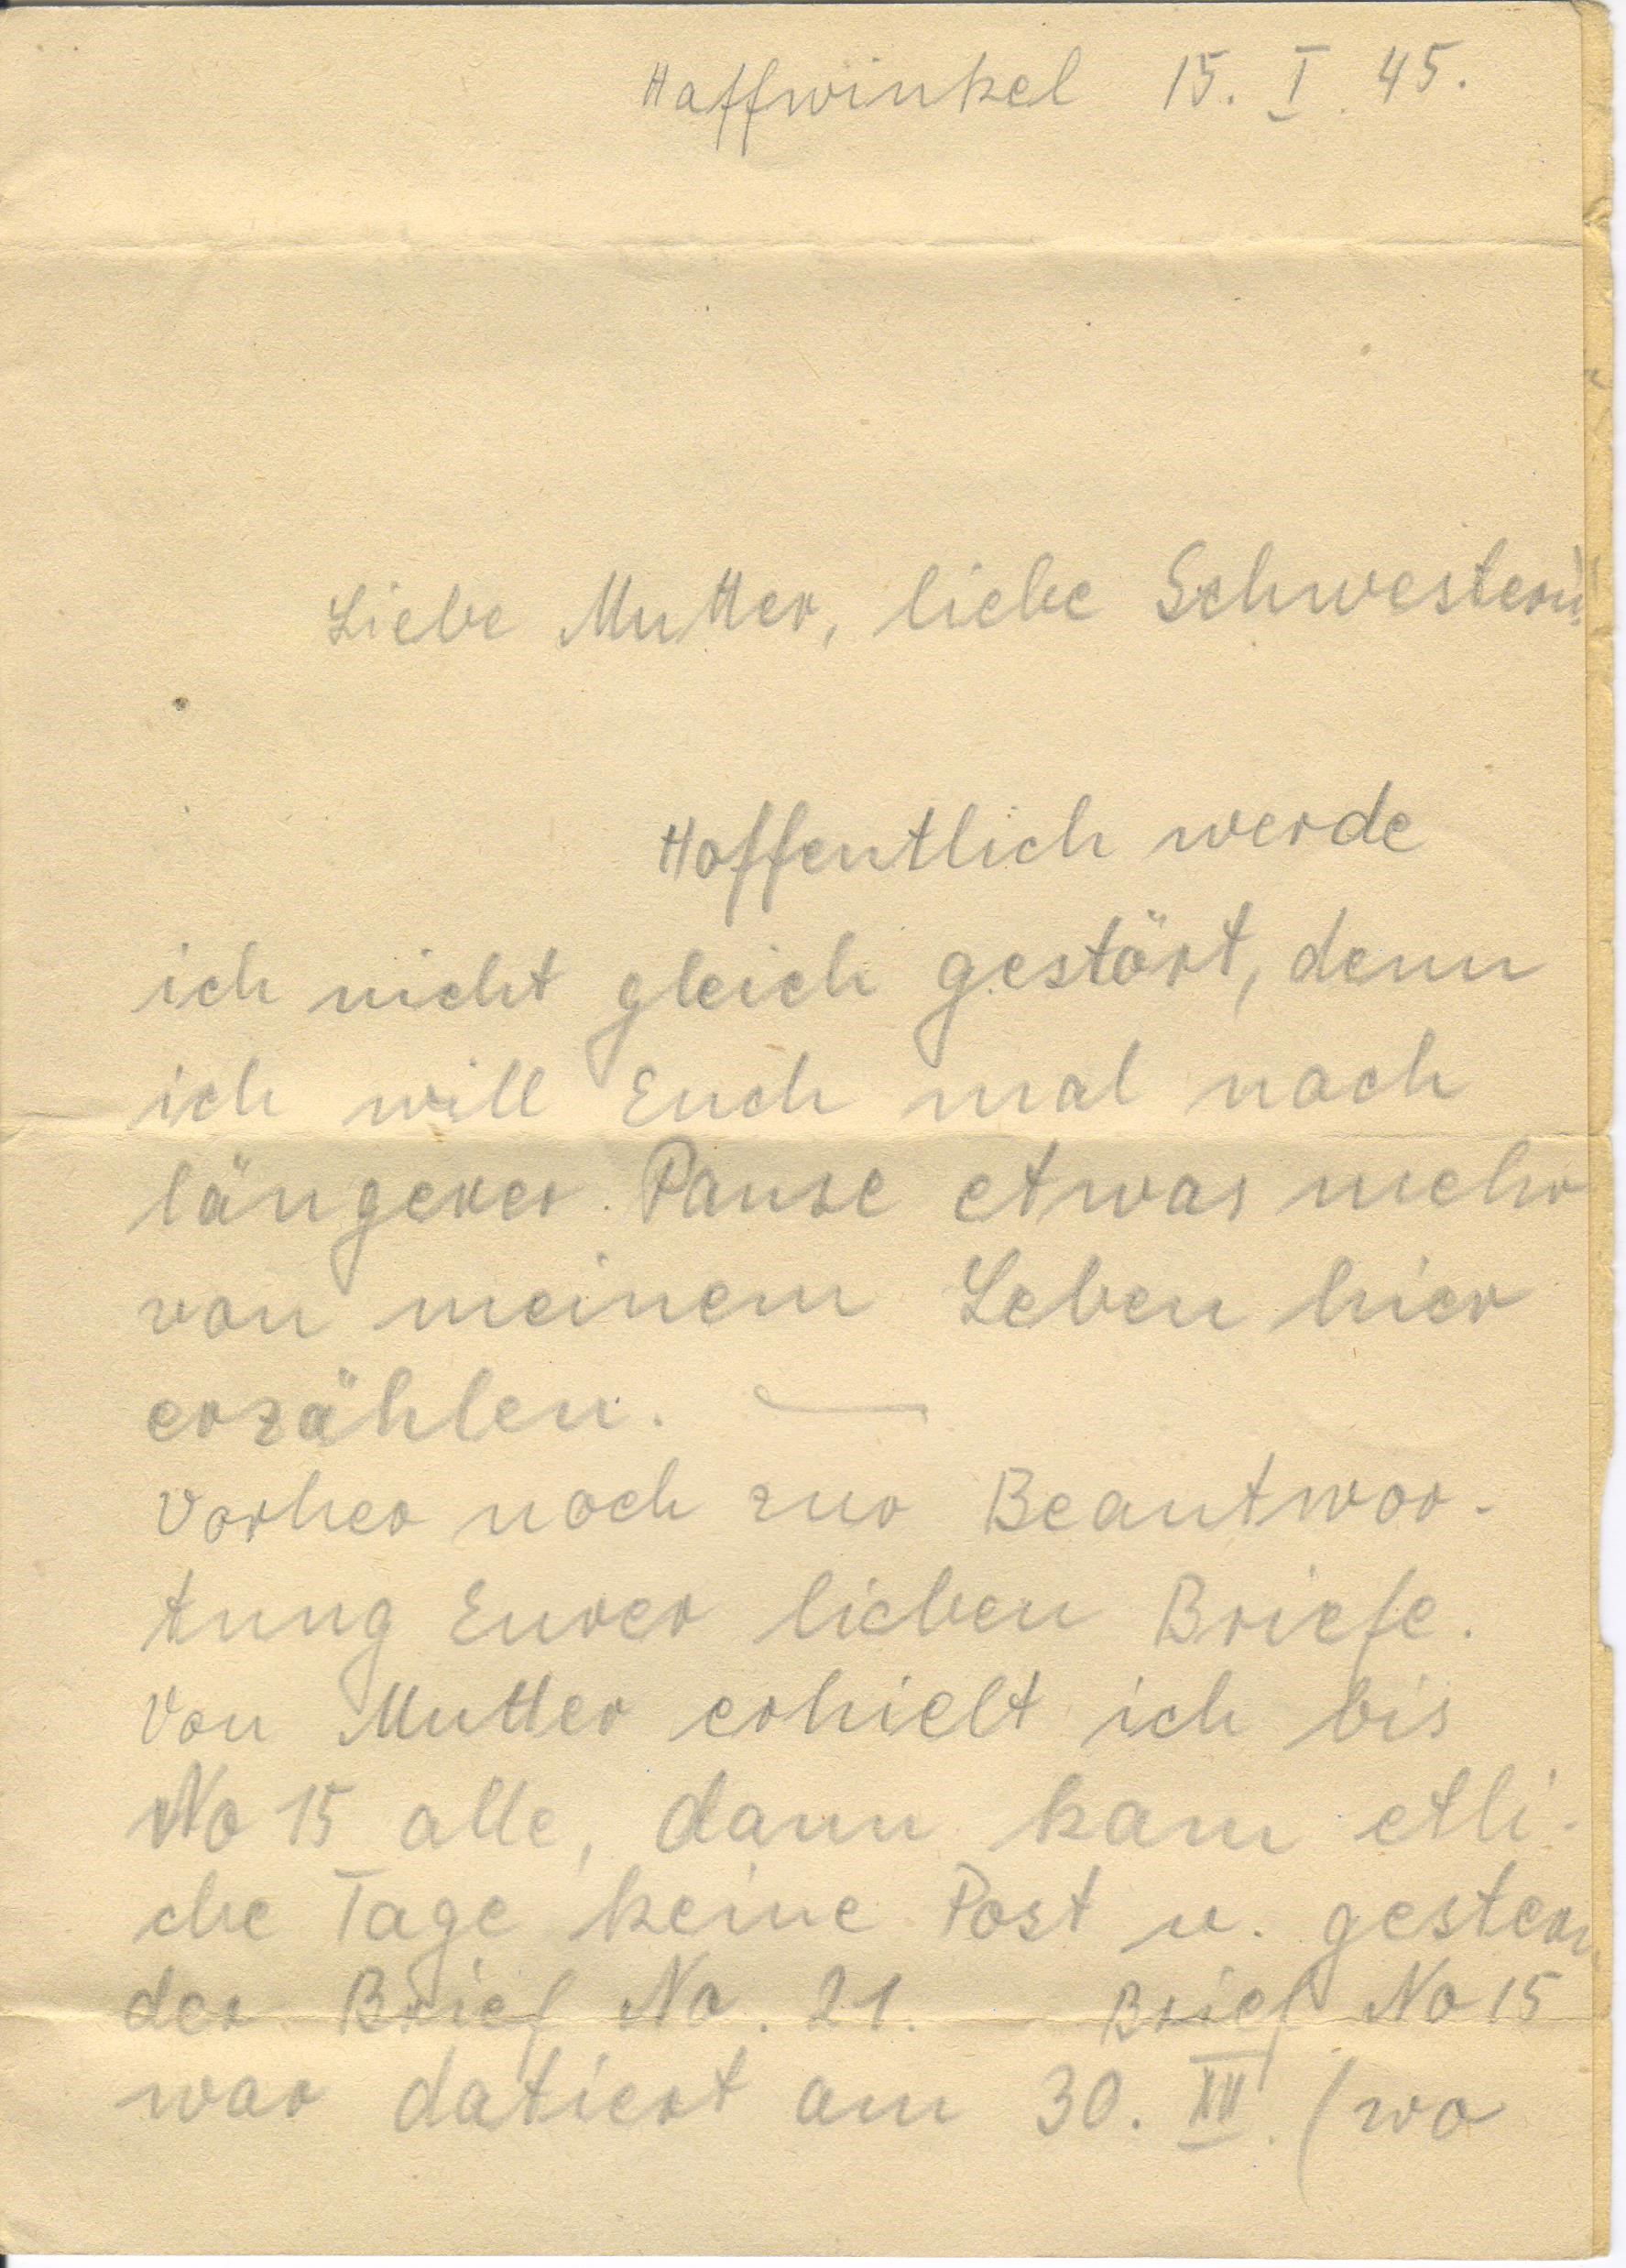 Haffwinkel 15. I. 45.
Liebe Mutter, liebe Schwestern!
Hoffentlich werde
ich nicht gleich gestört, denn
ich will Euch mal nach
längerer Pause etwas mehr
von meinem Leben hier
erzählen. —
Vorher noch zur Beantwor-
tung Eurer lieben Briefe.
Von Mutter erhielt ich bis
No 15 alle, dann kam etli-
che Tage keine Post u. gestern
der Brief No. 21. Brief No 15
war datiert am 30. XII. (wo